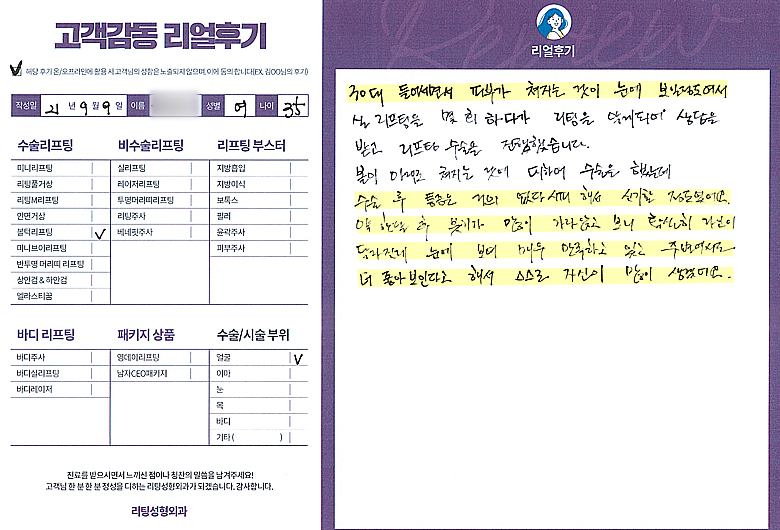 고객감동 리얼후기
해당 후기 온/오프라인에 활용 시 고객님의 성함은 노출되지 않으며, 이에 동의 합니다(EX, 김OO님의 후기)
작성일 21년 9월 9일 이름 성별 여 나이 35
수술리프팅
미니리프팅
리팅풀거상
리팅M리프팅
안면거상
봄턱리프팅 ✓
미니브이리프팅
반투명 머리띠 리프팅
상안검 & 하안검
얼라스티꿈
비수술리프팅
실리프팅
레이저리프팅
투명머리띠리프팅
리팅주사
베네핏주사
리프팅 부스터
지방흡입
지방이식
보톡스
필러
윤곽주사
피부주사
바디 리프팅
바디주사
바디실리프팅
바디레이저
패키지 상품
영데이리프팅
남자CEO패키지
수술/시술 부위
얼굴 ✓
이마
눈
목
바디
기타 ( )
진료를 받으시면서 느끼신 점이나 칭찬의 말씀을 남겨주세요!
고객님 한 분 한 분 정성을 다하는 리팅성형외과가 되겠습니다. 감사합니다.
리팅성형외과
Review
리얼후기
30대 들어서면서 피부가 쳐지는 것이 눈에 보일정도여서
실 리프팅을 몇 회 하다가 리팅을 알게되어 상담을
받고 리프팅 수술을 진행했습니다.
볼이 아래로 쳐지는 것에 대하여 수술을 했는데
수술 후 통증은 거의 없다시피 해서 신기할 정도였어요.
약 한달 후 붓기가 많이 가라앉고 보니 확실히 라인이
달라진게 눈에 보여 매우 만족하고 있고 주변에서도
더 좋아보인다고 해서 스스로 자신이 많이 생겼어요.